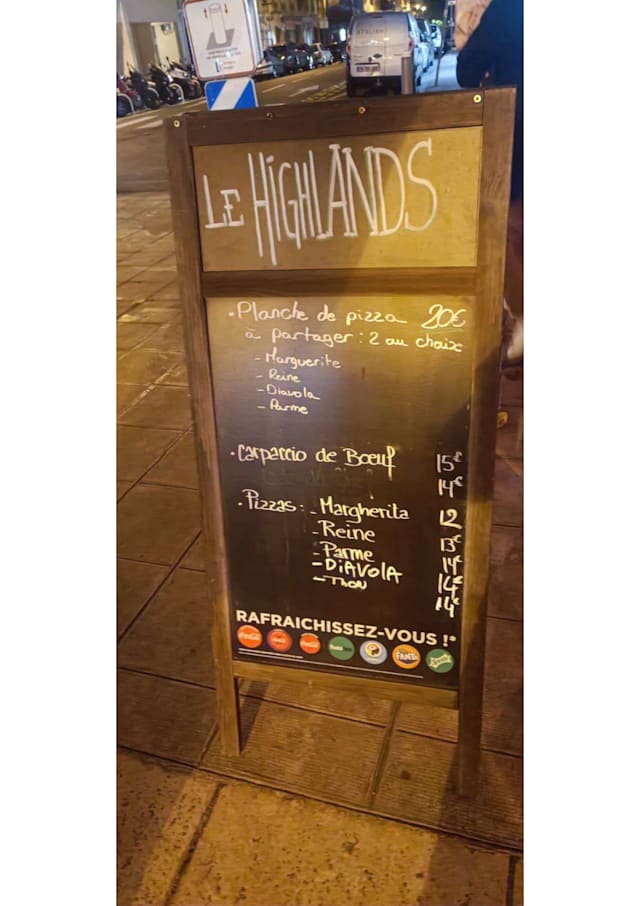 ITALIAN
LE HIGHLANDS
• Planche de pizza 20€
à partager : 2 au choix
- Marguerite
- Reine
- Diavola
- Parme
• Carpaccio de Boeuf 15€
14€
• Pizzas : - Margherita 12
- Reine 13€
- Parme 14€
- DiAVOLA 14€
- THON 14€
RAFRAICHISSEZ-VOUS !*
Coca-Cola
FANTA